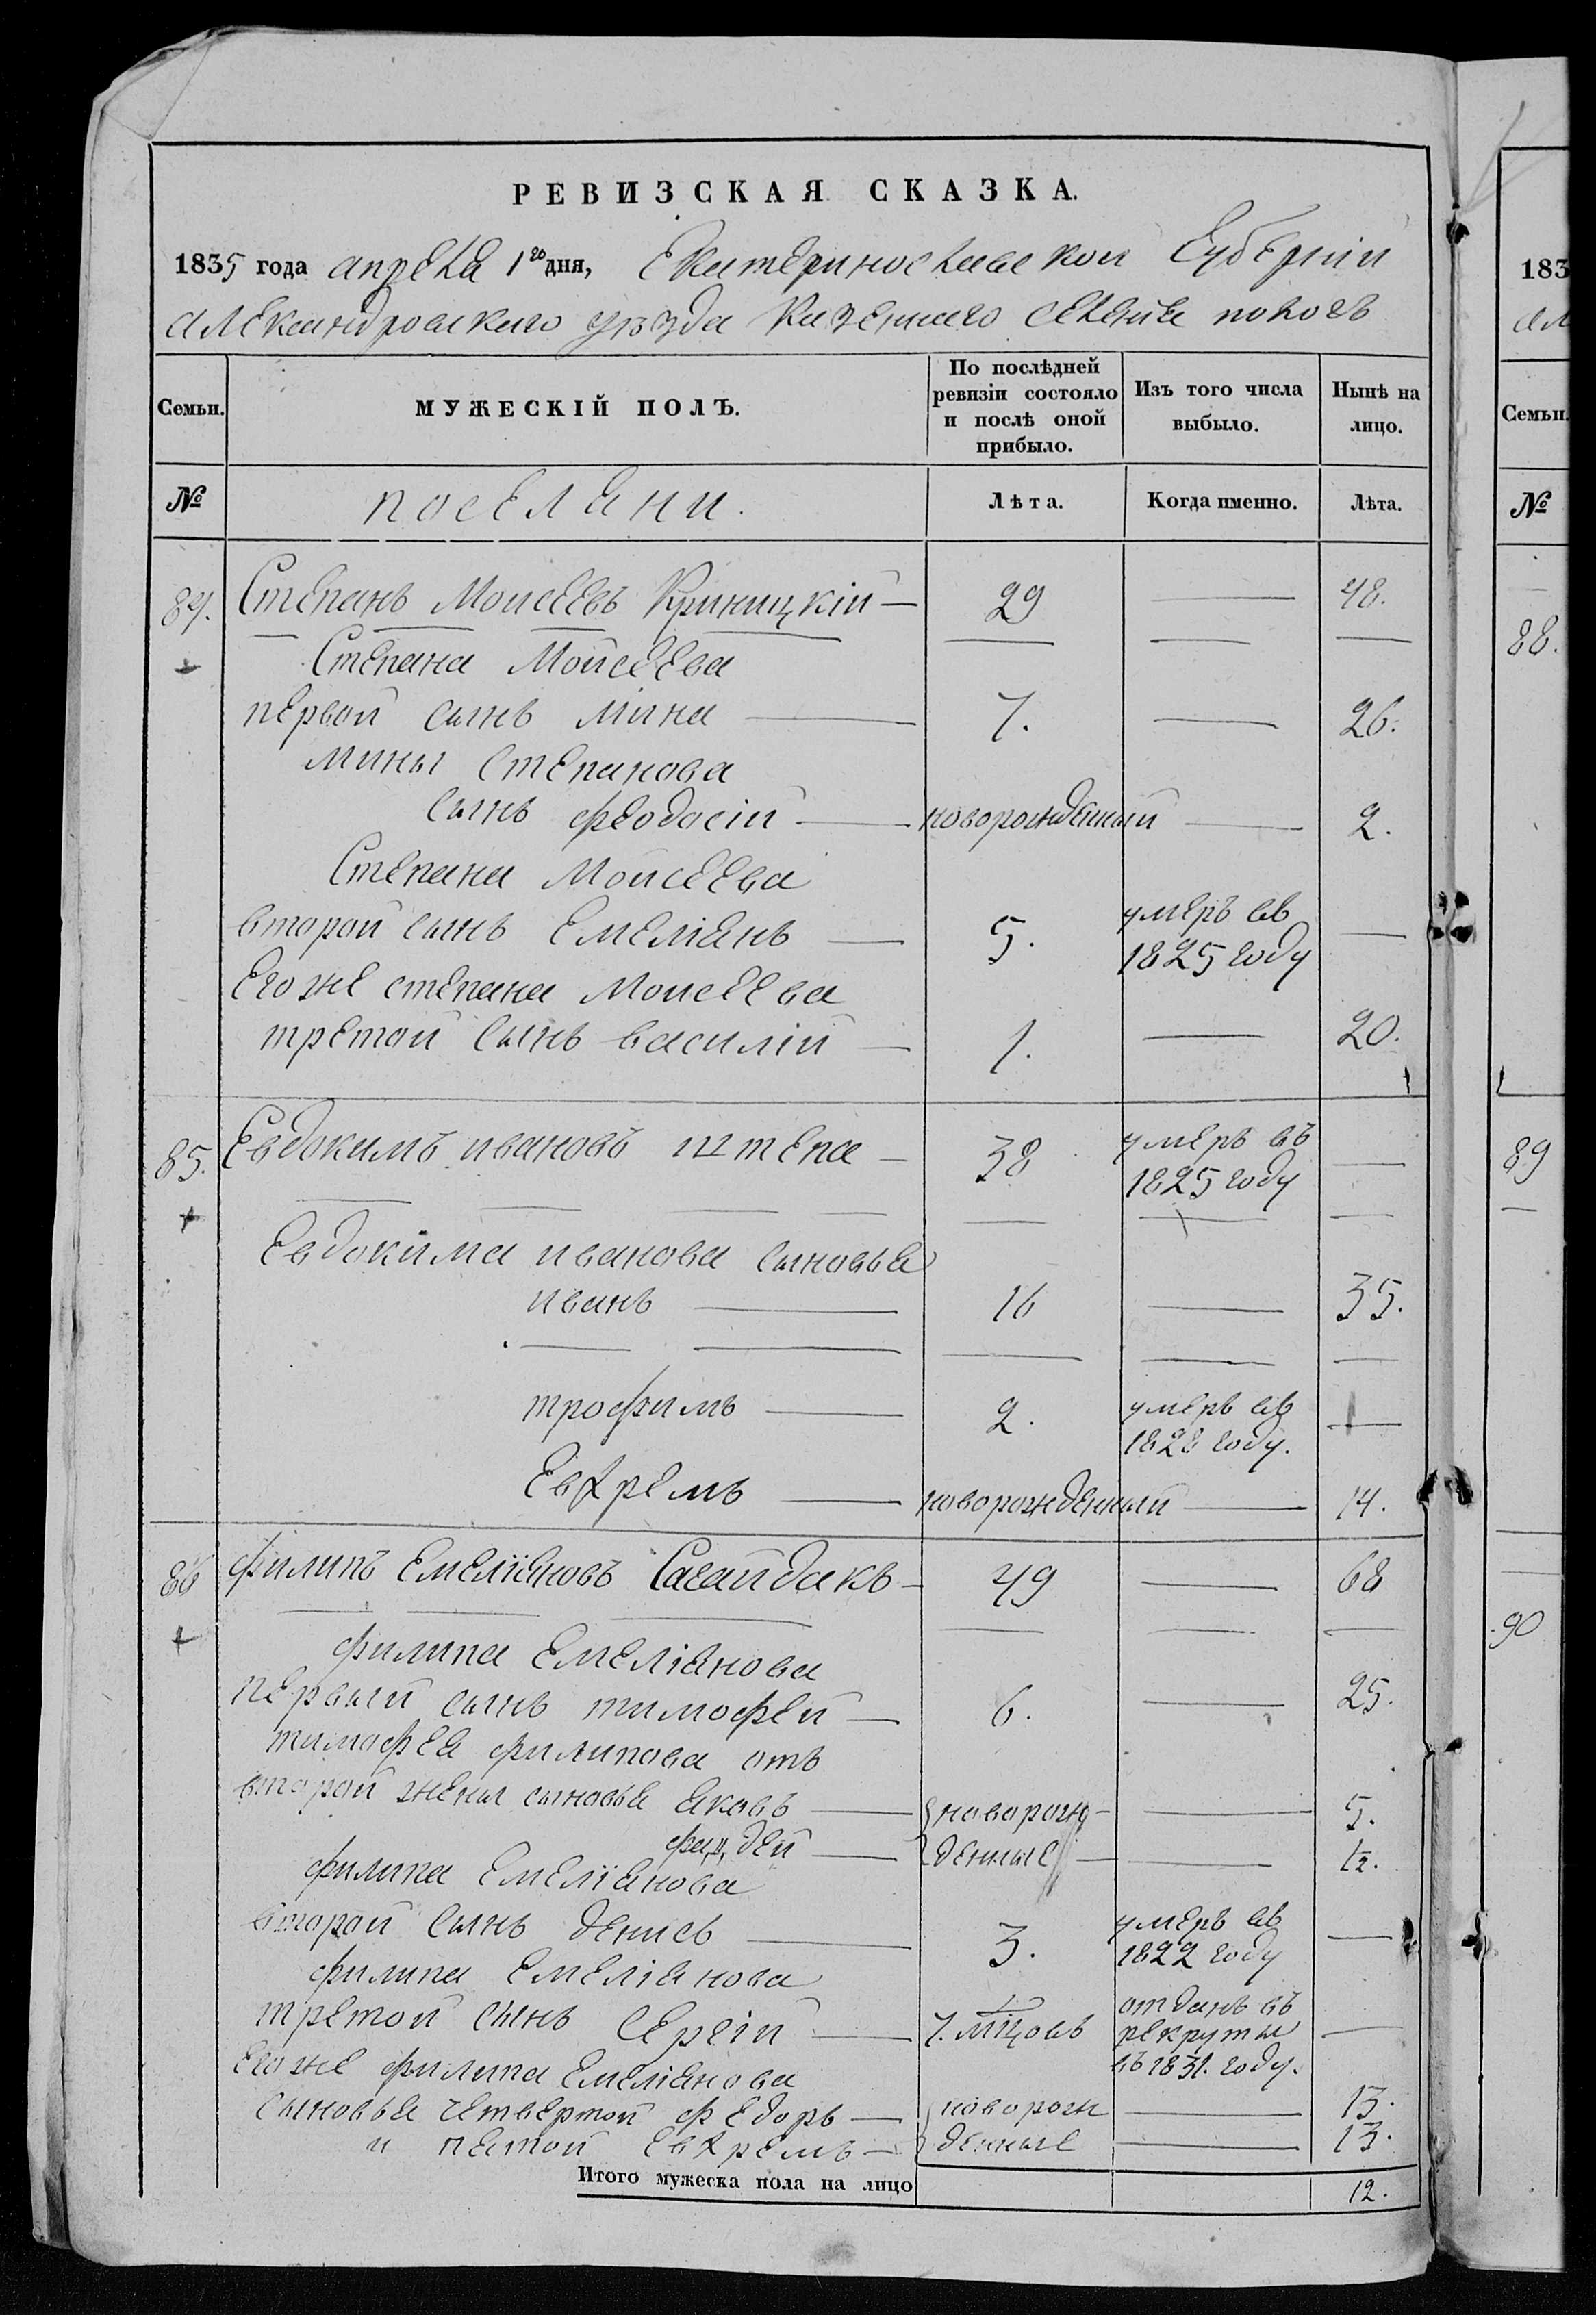 РЕВИЗСКАЯ СКАЗКА.
1835 года апреля 1го дня, Екатеринославской Губернии
Александровскаго уезда Казеннаго селения пологъ
Семьи. МУЖЕСКІЙ ПОЛЪ. По послѣдней ревизіи состояло и послѣ оной прибыло. Изъ того числа выбыло. Нынѣ на лицо.
№ поселяни. Лѣта. Когда именно. Лѣта.
84. Степанъ Моисеевъ Криницкій — 29 — 48.
Степана Моисеева
первой сынъ Мина — 7. — 26.
Мины Степанова
сынъ феодосій — новорожденный — 2.
Степана Моисеева
второй сынъ Емеліянъ — 5. умеръ въ 1825 году —
Егоже степана Моисеева
третой сынъ василій — 1. — 20.
85. Евдокимъ ивановъ штепа — 38 умеръ въ 1825 году —
Евдокима иванова сыновья
иванъ — 16 — 35.
трофимъ — 2. умеръ въ 1828 году. —
Евхремъ — новорожденный — 14.
86 филипъ Емеліяновъ Сагайдакъ — 49 — 68
филипа Емеліянова
первый сынъ тимофей — 6. — 25.
тимофея филипова отъ
второй жены сыновья яковъ — новорож- — 5.
фаддей — денные — 1/2.
филипа Емеліянова
второй сынъ денисъ — 3. умеръ въ 1822 году —
филипа Емеліянова
третой сынъ Сергій — 7. мцовъ отданъ въ рекруты въ 1831. году. —
Егоже филипа Емеліянова
сыновья четвертой федоръ — новорож — 13.
и пятой Евхремъ — денные — 13.
Итого мужеска пола на лицо 12.
183
Ал
Семьи.
№
88.
89
90